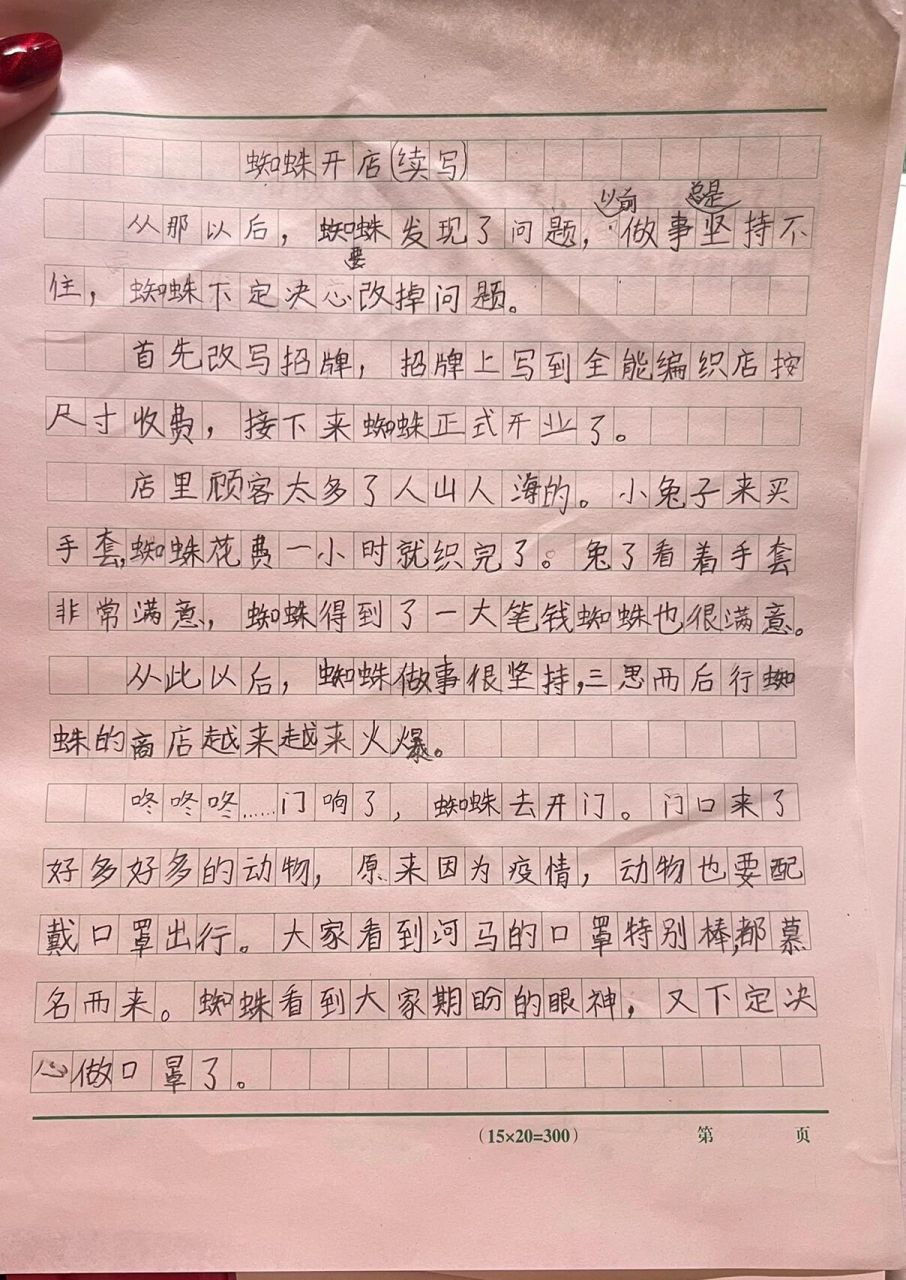 蜘蛛开店(续写)
以前 总是
从那以后，蜘蛛发现了问题，做事坚持不
要
住，蜘蛛下定决心改掉问题。
首先改写招牌，招牌上写到全能编织店按
尺寸收费，接下来蜘蛛正式开业了。
店里顾客太多了人山人海的。小兔子来买
手套,蜘蛛花费一小时就织完了。兔了看着手套
非常满意，蜘蛛得到了一大笔钱蜘蛛也很满意。
从此以后，蜘蛛做事很坚持,三思而后行蜘
蛛的商店越来越来火爆。
咚咚咚……门响了，蜘蛛去开门。门口来了
好多好多的动物，原来因为疫情，动物也要配
戴口罩出行。大家看到河马的口罩特别棒,都慕
名而来。蜘蛛看到大家期盼的眼神，又下定决
心做口罩了。
(15×20=300) 第 页